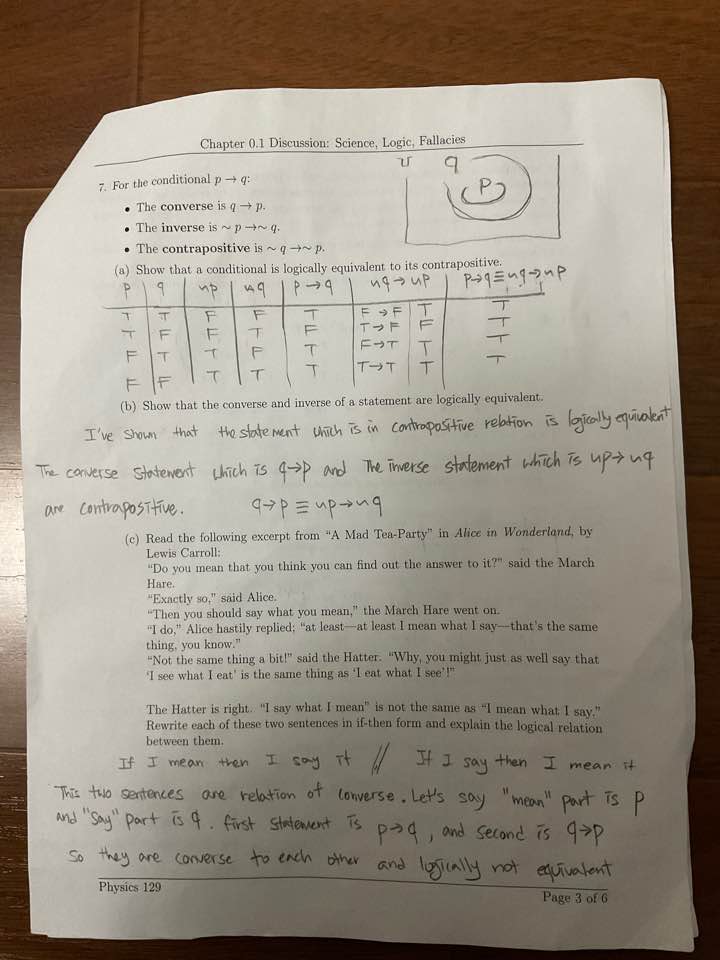 Chapter 0.1 Discussion: Science, Logic, Fallacies
U q
P
7. For the conditional p → q:
• The converse is q → p.
• The inverse is ∼ p →∼ q.
• The contrapositive is ∼ q →∼ p.
(a) Show that a conditional is logically equivalent to its contrapositive.
p q ~p ~q p→q ~q→~p p→q≡~q→~p
T T F F T F→F T T
T F F T F T→F F T
F T T F T F→T T T
F F T T T T→T T T
(b) Show that the converse and inverse of a statement are logically equivalent.
I've shown that the statement which is in contrapositive relation is logically equivalent
The converse statement which is q→p and The inverse statement which is ~p→~q
are contrapositive. q→p ≡ ~p→~q
(c) Read the following excerpt from “A Mad Tea-Party” in Alice in Wonderland, by
Lewis Carroll:
“Do you mean that you think you can find out the answer to it?” said the March
Hare.
“Exactly so,” said Alice.
“Then you should say what you mean,” the March Hare went on.
“I do,” Alice hastily replied; “at least—at least I mean what I say—that's the same
thing, you know.”
“Not the same thing a bit!” said the Hatter. “Why, you might just as well say that
‘I see what I eat’ is the same thing as ‘I eat what I see’!”
The Hatter is right. “I say what I mean” is not the same as “I mean what I say.”
Rewrite each of these two sentences in if-then form and explain the logical relation
between them.
If I mean then I say it // If I say then I mean it
This two sentences are relation of converse. Let's say "mean" part is p
and "say" part is q. first statement is p→q, and second is q→p
So they are converse to each other and logically not equivalent
Physics 129
Page 3 of 6